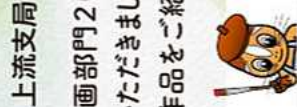 上流支局
画部門2
ただきまし
作品をご紹